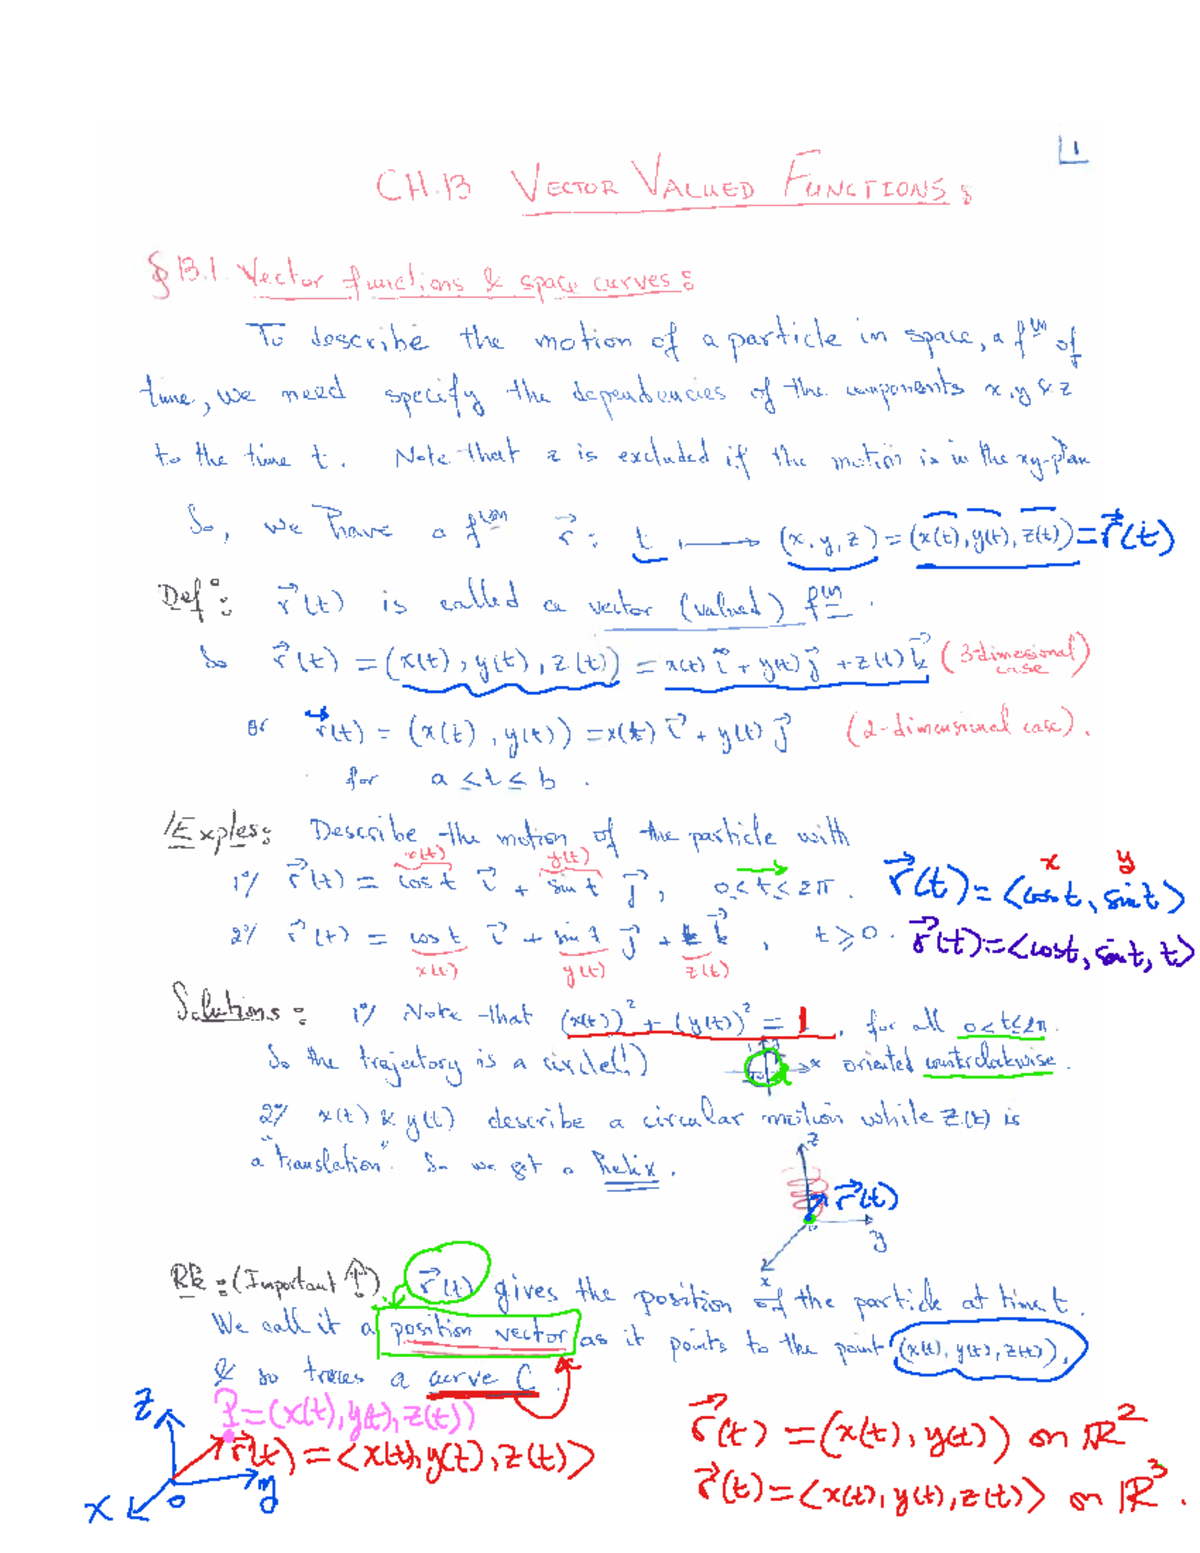 1
CH.13 VECTOR VALUED FUNCTIONS:
§ 13.1 Vector functions & space curves:
To describe the motion of a particle in space, a fᵘⁿ of
time, we need specify the dependencies of the components x, y & z
to the time t. Note that z is excluded if the motion is in the xy-plan
So, we have a fᵘᵒⁿ r⃗ : t ⟼ (x, y, z) = (x(t), y(t), z(t)) = r⃗(t)
Defᵒ: r⃗(t) is called a vector (valued) fᵘⁿ.
So r⃗(t) = (x(t), y(t), z(t)) = x(t) i⃗ + y(t) j⃗ + z(t) k⃗ (3-dimesional case)
or r⃗(t) = (x(t), y(t)) = x(t) i⃗ + y(t) j⃗ (2-dimensional case).
for a ≤ t ≤ b.
Exples: Describe the motion of the particle with
x(t) y(t) x y
1°/ r⃗(t) = cos t i⃗ + sin t j⃗, 0 ≤ t ≤ 2π. r⃗(t) = ⟨cos t, sin t⟩
2°/ r⃗(t) = cos t i⃗ + sin t j⃗ + t k⃗, t ≥ 0. r⃗(t) = ⟨cos t, sin t, t⟩
x(t) y(t) z(t)
Solutions: 1°/ Note that (x(t))² + (y(t))² = 1, for all 0 < t ≤ 2π.
So the trajectory is a circle(!) x oriented counterclockwise.
2°/ x(t) & y(t) describe a circular motion while z(t) is
a "translation". So we get a helix.
z
r⃗(t)
y
x
Rk: (Important !) r⃗(t) gives the position of the particle at time t.
We call it a position vector as it points to the point (x(t), y(t), z(t)),
& so traces a curve C.
z P = (x(t), y(t), z(t))
r⃗(t) = ⟨x(t), y(t), z(t)⟩
x o y
r⃗(t) = (x(t), y(t)) on ℝ²
r⃗(t) = ⟨x(t), y(t), z(t)⟩ on ℝ³.